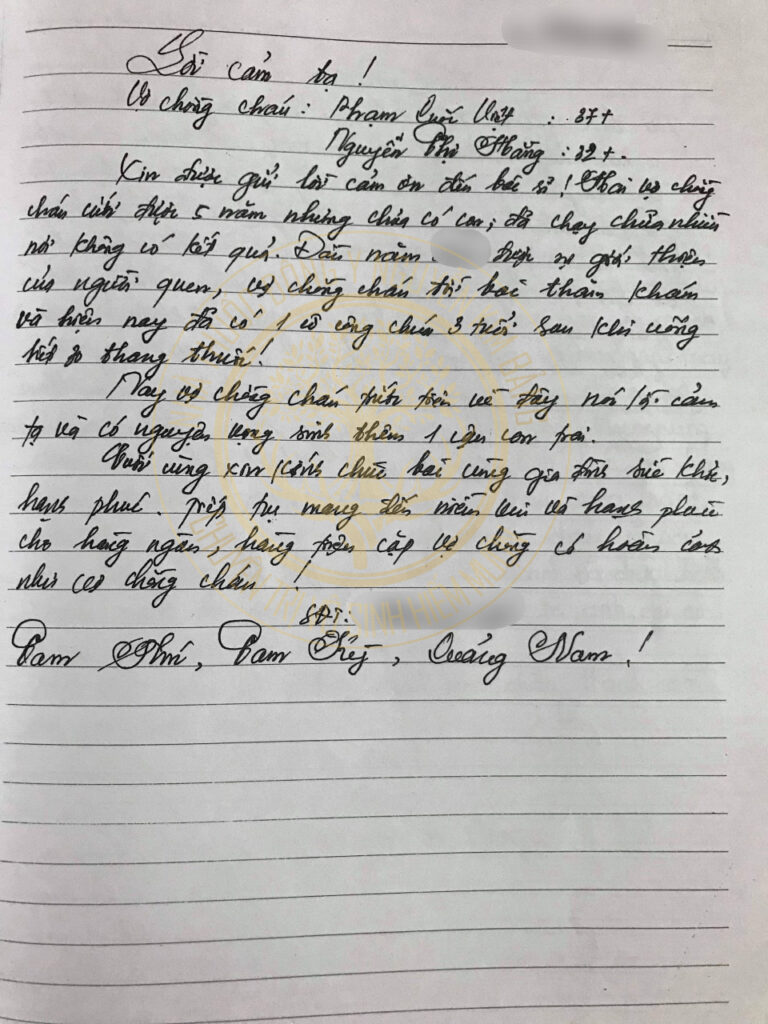 Lời cảm tạ!
Vợ chồng cháu: Phạm Quốc Việt : 37t
Nguyễn Thị Hằng : 32t.
Xin được gửi lời cảm ơn đến bác sĩ! Hai vợ chồng
cháu cưới được 5 năm nhưng chưa có con; đã chạy chữa nhiều
nơi không có kết quả. Đầu năm được sự giới thiệu
của người quen, vợ chồng cháu tới bác thăm khám
và hiện nay đã có 1 cô công chúa 3 tuổi sau khi uống
hết 30 thang thuốc!
Nay vợ chồng cháu trước tiên về đây nói lời cảm
tạ và có nguyện vọng sinh thêm 1 cậu con trai.
Cuối cùng xin kính chúc bác cùng gia đình sức khỏe,
hạnh phúc. Tiếp tục mang đến niềm vui và hạnh phúc
cho hàng ngàn, hàng triệu cặp vợ chồng có hoàn cảnh
như vợ chồng cháu!
SĐT:
Tam Phú, Tam Kỳ, Quảng Nam!